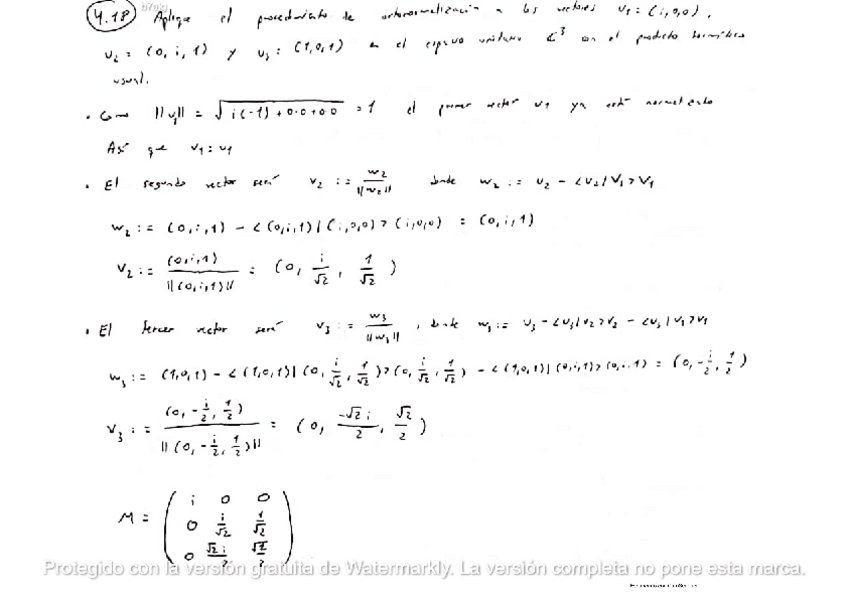 4.18 Aplique el procedimiento de ortonormalización a los vectores u₁ = (i,0,0),
u₂ = (0, i, 1) y u₃ = (1,0,1) en el espacio unitario ℂ³ con el producto hermítico
usual.
• Como ||u₁|| = √(i(-i) + 0·0 + 0·0) = 1 el primer vector u₁ ya está normalizado
Así que v₁ = u₁
• El segundo vector será v₂ := w₂/||w₂|| donde w₂ := u₂ - <u₂|v₁>v₁
w₂ := (0,i,1) - <(0,i,1)|(i,0,0)>(i,0,0) = (0,i,1)
v₂ := (0,i,1)/||(0,i,1)|| = (0, i/√2, 1/√2)
• El tercer vector será v₃ := w₃/||w₃||, donde w₃ := u₃ - <u₃|v₂>v₂ - <u₃|v₁>v₁
w₃ := (1,0,1) - <(1,0,1)|(0, i/√2, 1/√2)>(0, i/√2, 1/√2) - <(1,0,1)|(0,i,1)>(0,i,1) = (0, -i/2, 1/2)
v₃ := (0, -i/2, 1/2)/||(0, -i/2, 1/2)|| = (0, -√2 i/2, √2/2)
M = ( i 0 0
0 i/√2 1/√2
0 √2 i/2 √2/2 )
Protegido con la versión gratuita de Watermarkly. La versión completa no pone esta marca.